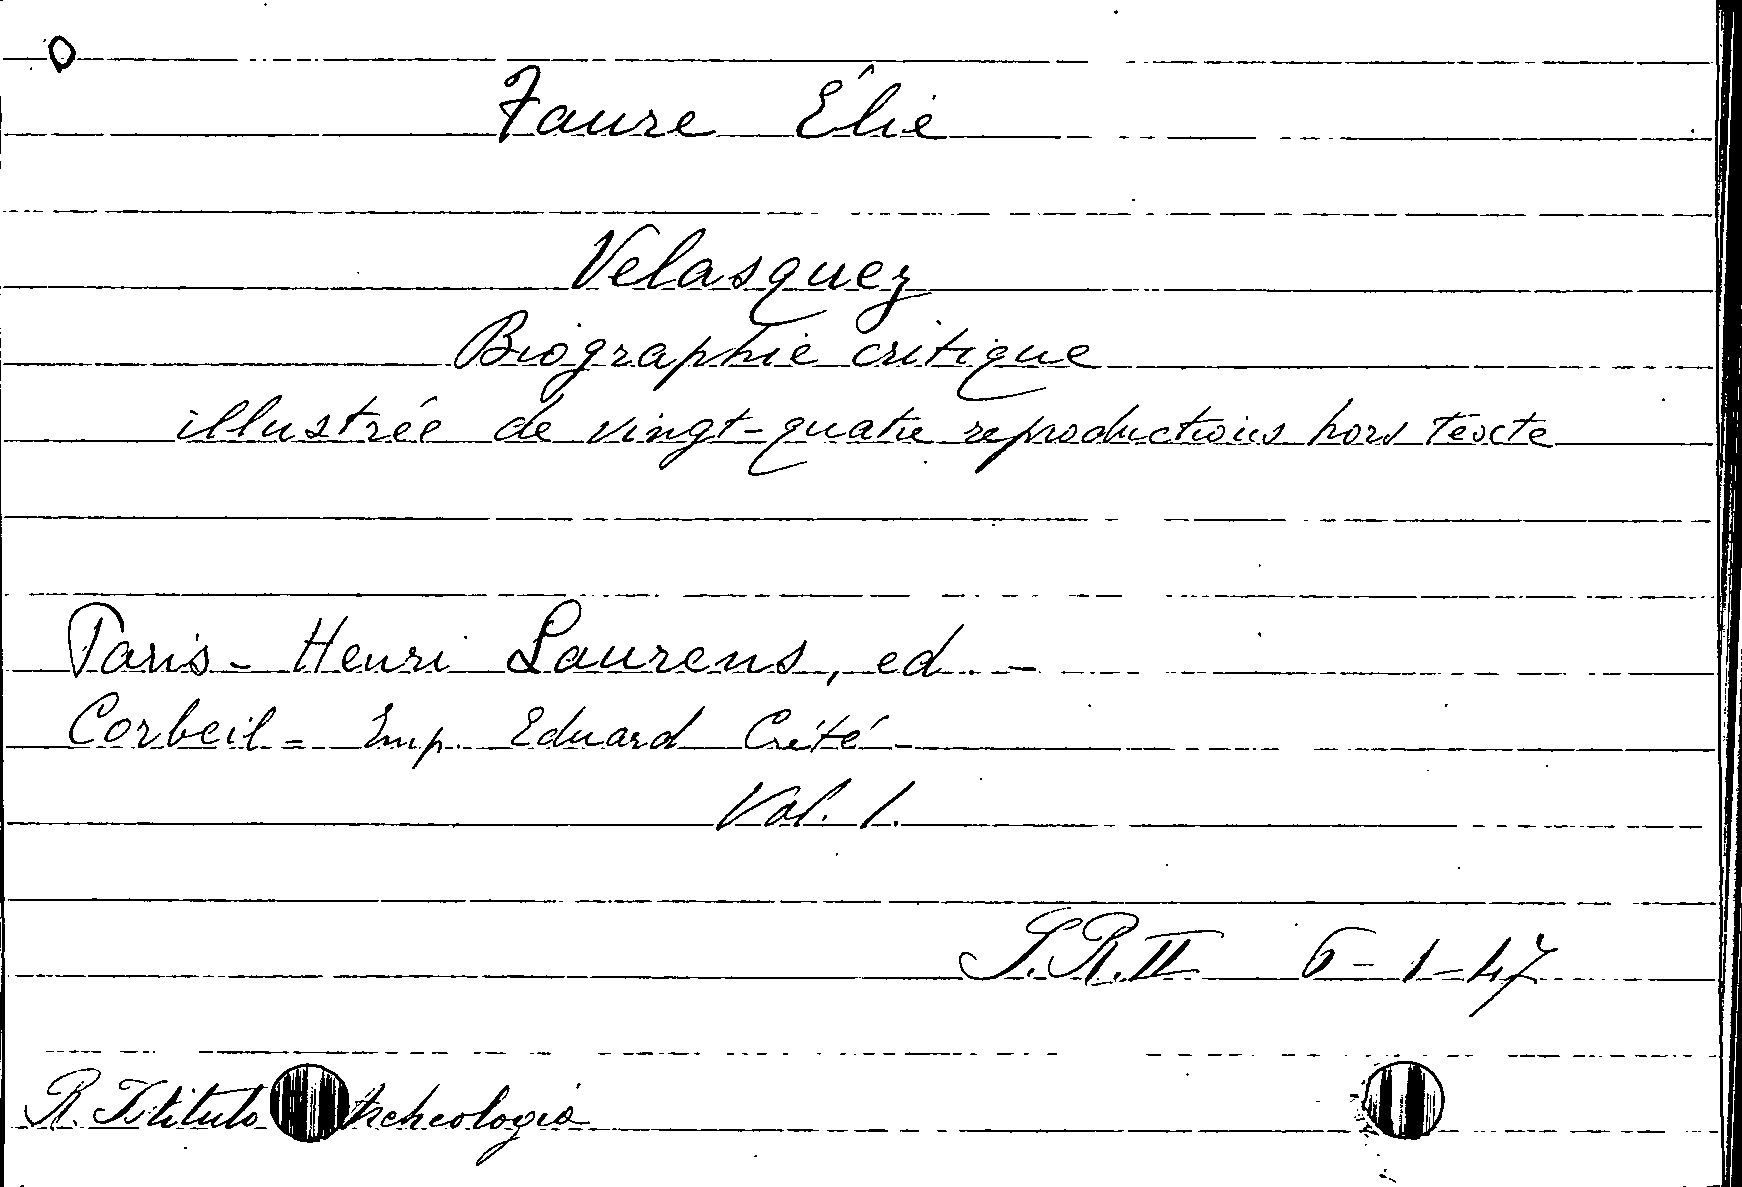 Faure Élie
Velasquez
Biographie critique
illustrée de vingt-quatre reproductions hors texte
Paris - Henri Laurens, ed. -
Corbeil - Imp. Eduard Crété -
Vol. 1.
S.R.II 6-1-47
R. Istituto Archeologia